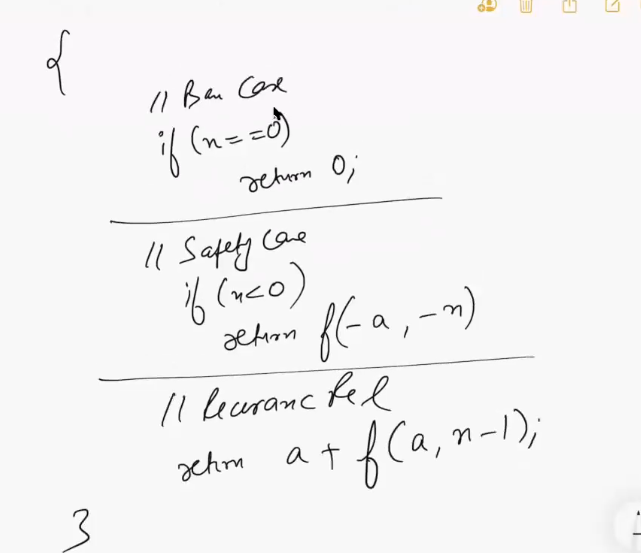 {
// Base Case
if (n==0)
return 0;
// Safety Case
if (n<0)
return f(-a, -n)
// Recuranc Rel
return a + f(a, n-1);
}